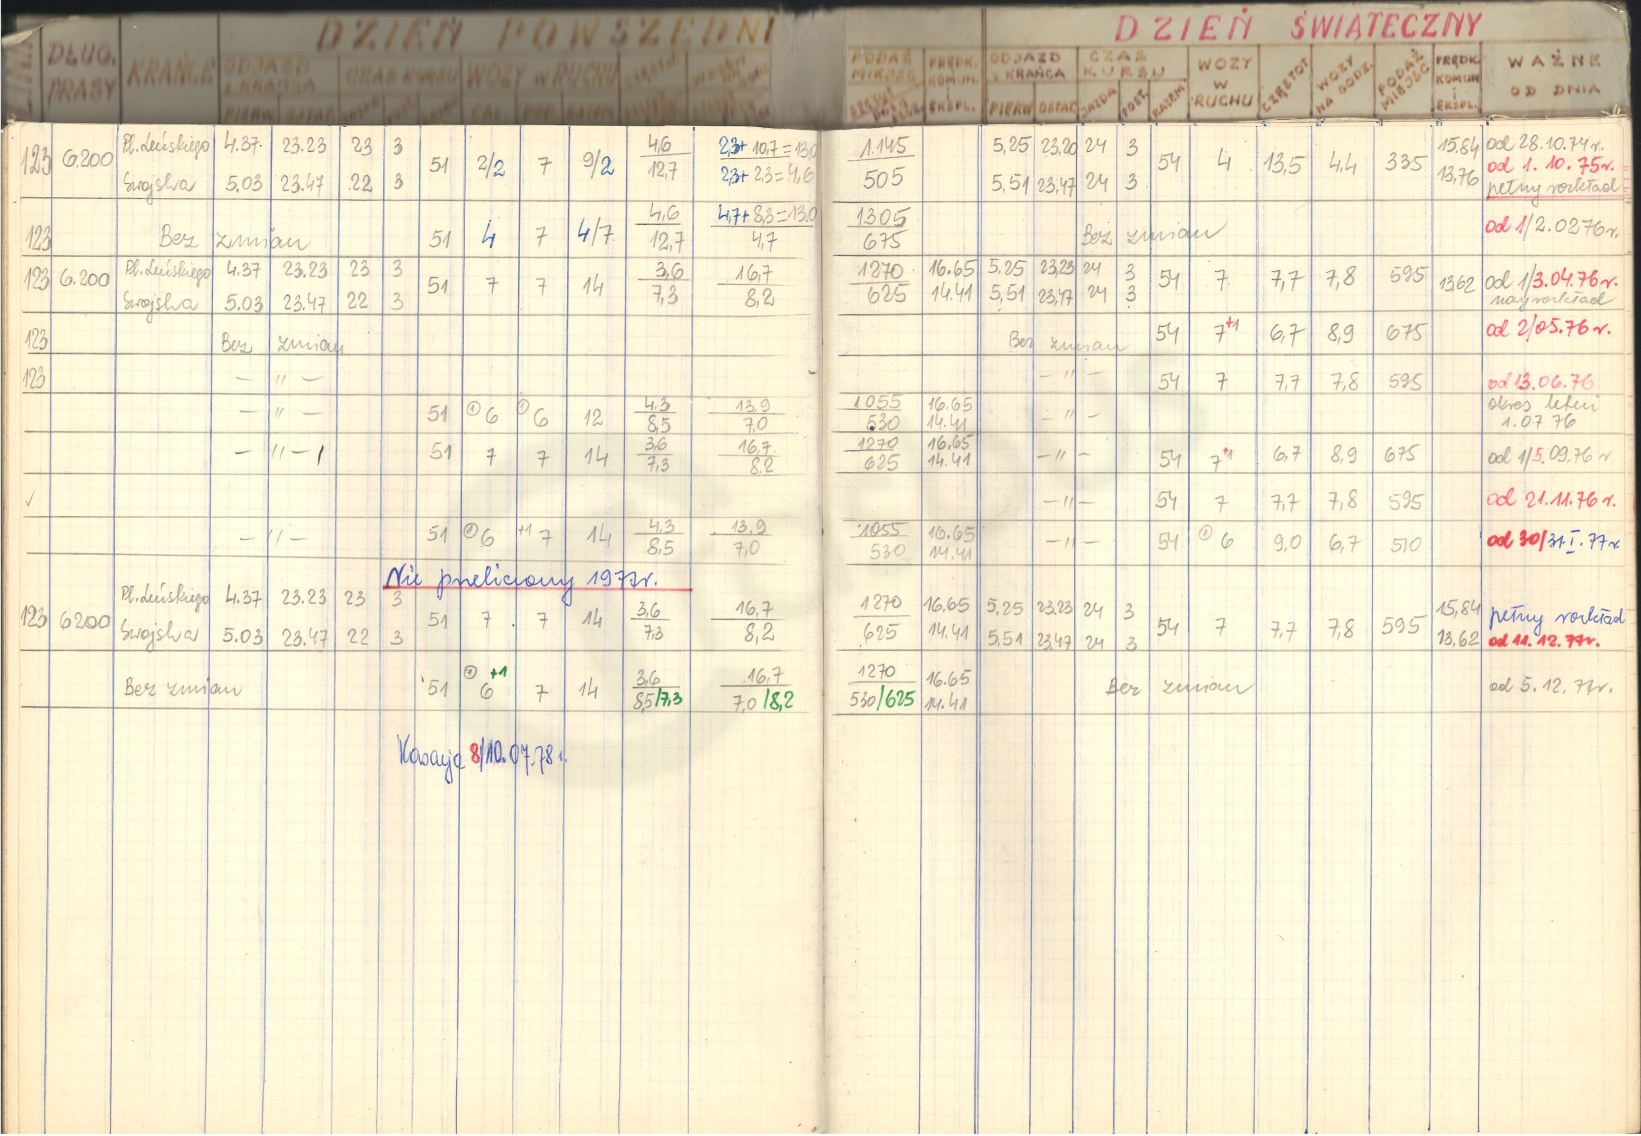 DZIEŃ POWSZEDNI DZIEŃ ŚWIĄTECZNY
DŁUG. TRASY KRAŃCE ODJAZD Z KRAŃCA CZAS KURSU WOZY W RUCHU
PODAŻ MIEJSC PRĘDK. KOMUN. EKSPL. ODJAZD Z KRAŃCA CZAS KURSU WOZY W RUCHU CZĘSTOT WOZY NA GODZ. PODAŻ MIEJSC PRĘDK. KOMUN i EKSPL. WAŻNE OD DNIA
PIERW OSTAT JAZDA POST. RAZEM
123 6.200 Pl. Leńskiego 4.37 23.23 23 3 51 2/2 7 9/2 4,6 2,3+10,7=13,0 1.145 5,25 23,20 24 3 54 4 13,5 4,4 335 15,84 od 28.10.74r.
Swojska 5.03 23.47 22 3 12,7 2,3+2,3=4,6 505 5,51 23,47 24 3 13,76 od 1. 10. 75r.
pełny rozkład
123 Bez zmian 51 4 7 4/7 4,6 4,7+8,3=13.0 1305 Bez zmian od 1/2.02 76r.
12,7 4,7 675
123 6.200 Pl. Leńskiego 4.37 23.23 23 3 51 7 7 14 3,6 16,7 1270 16.65 5,25 23,23 24 3 54 7 7,7 7,8 595 13,62 od 1/3.04.76r.
Swojska 5.03 23.47 22 3 7,3 8,2 625 14.41 5,51 23,47 24 3
123 Bez zmian Bez zmian 54 7+1 6,7 8,9 675 od 2/05.76r.
123 — " — — " — 54 7 7,7 7,8 595 od 13.06.76
— " — 51 ① 6 ① 6 12 4.3 13.9 1055 16.65 — " — okres letni
8,5 7,0 530 14.41 1.07.76
— " — 51 7 7 14 3,6 16,7 1270 16,65 — " — 54 7+1 6,7 8,9 675 od 1/5.09.76r
7,3 8,2 625 14.41
✓ — " — 54 7 7,7 7,8 595 od 21.11.76r.
— " — 51 ① 6 +1 7 14 4.3 13.9 1055 16.65 — " — 54 ① 6 9,0 6,7 510 od 30/31.I.77r
8,5 7,0 530 14.41
Nie preliczony 1977r.
123 6200 Pl. Leńskiego 4.37 23.23 23 3 51 7 7 14 3,6 16,7 1270 16,65 5,25 23,23 24 3 54 7 7,7 7,8 595 15,84 pełny rozkład
Swojska 5.03 23.47 22 3 7,3 8,2 625 14.41 5,51 23,47 24 3 13,62 od 11.12.77r.
Bez zmian 51 ① 6 +1 7 14 3,6 16,7 1270 16.65 Bez zmian od 5.12.77r.
8,5/7,3 7,0/8,2 530/625 14.41
Kasacja 8/10.07.78r.